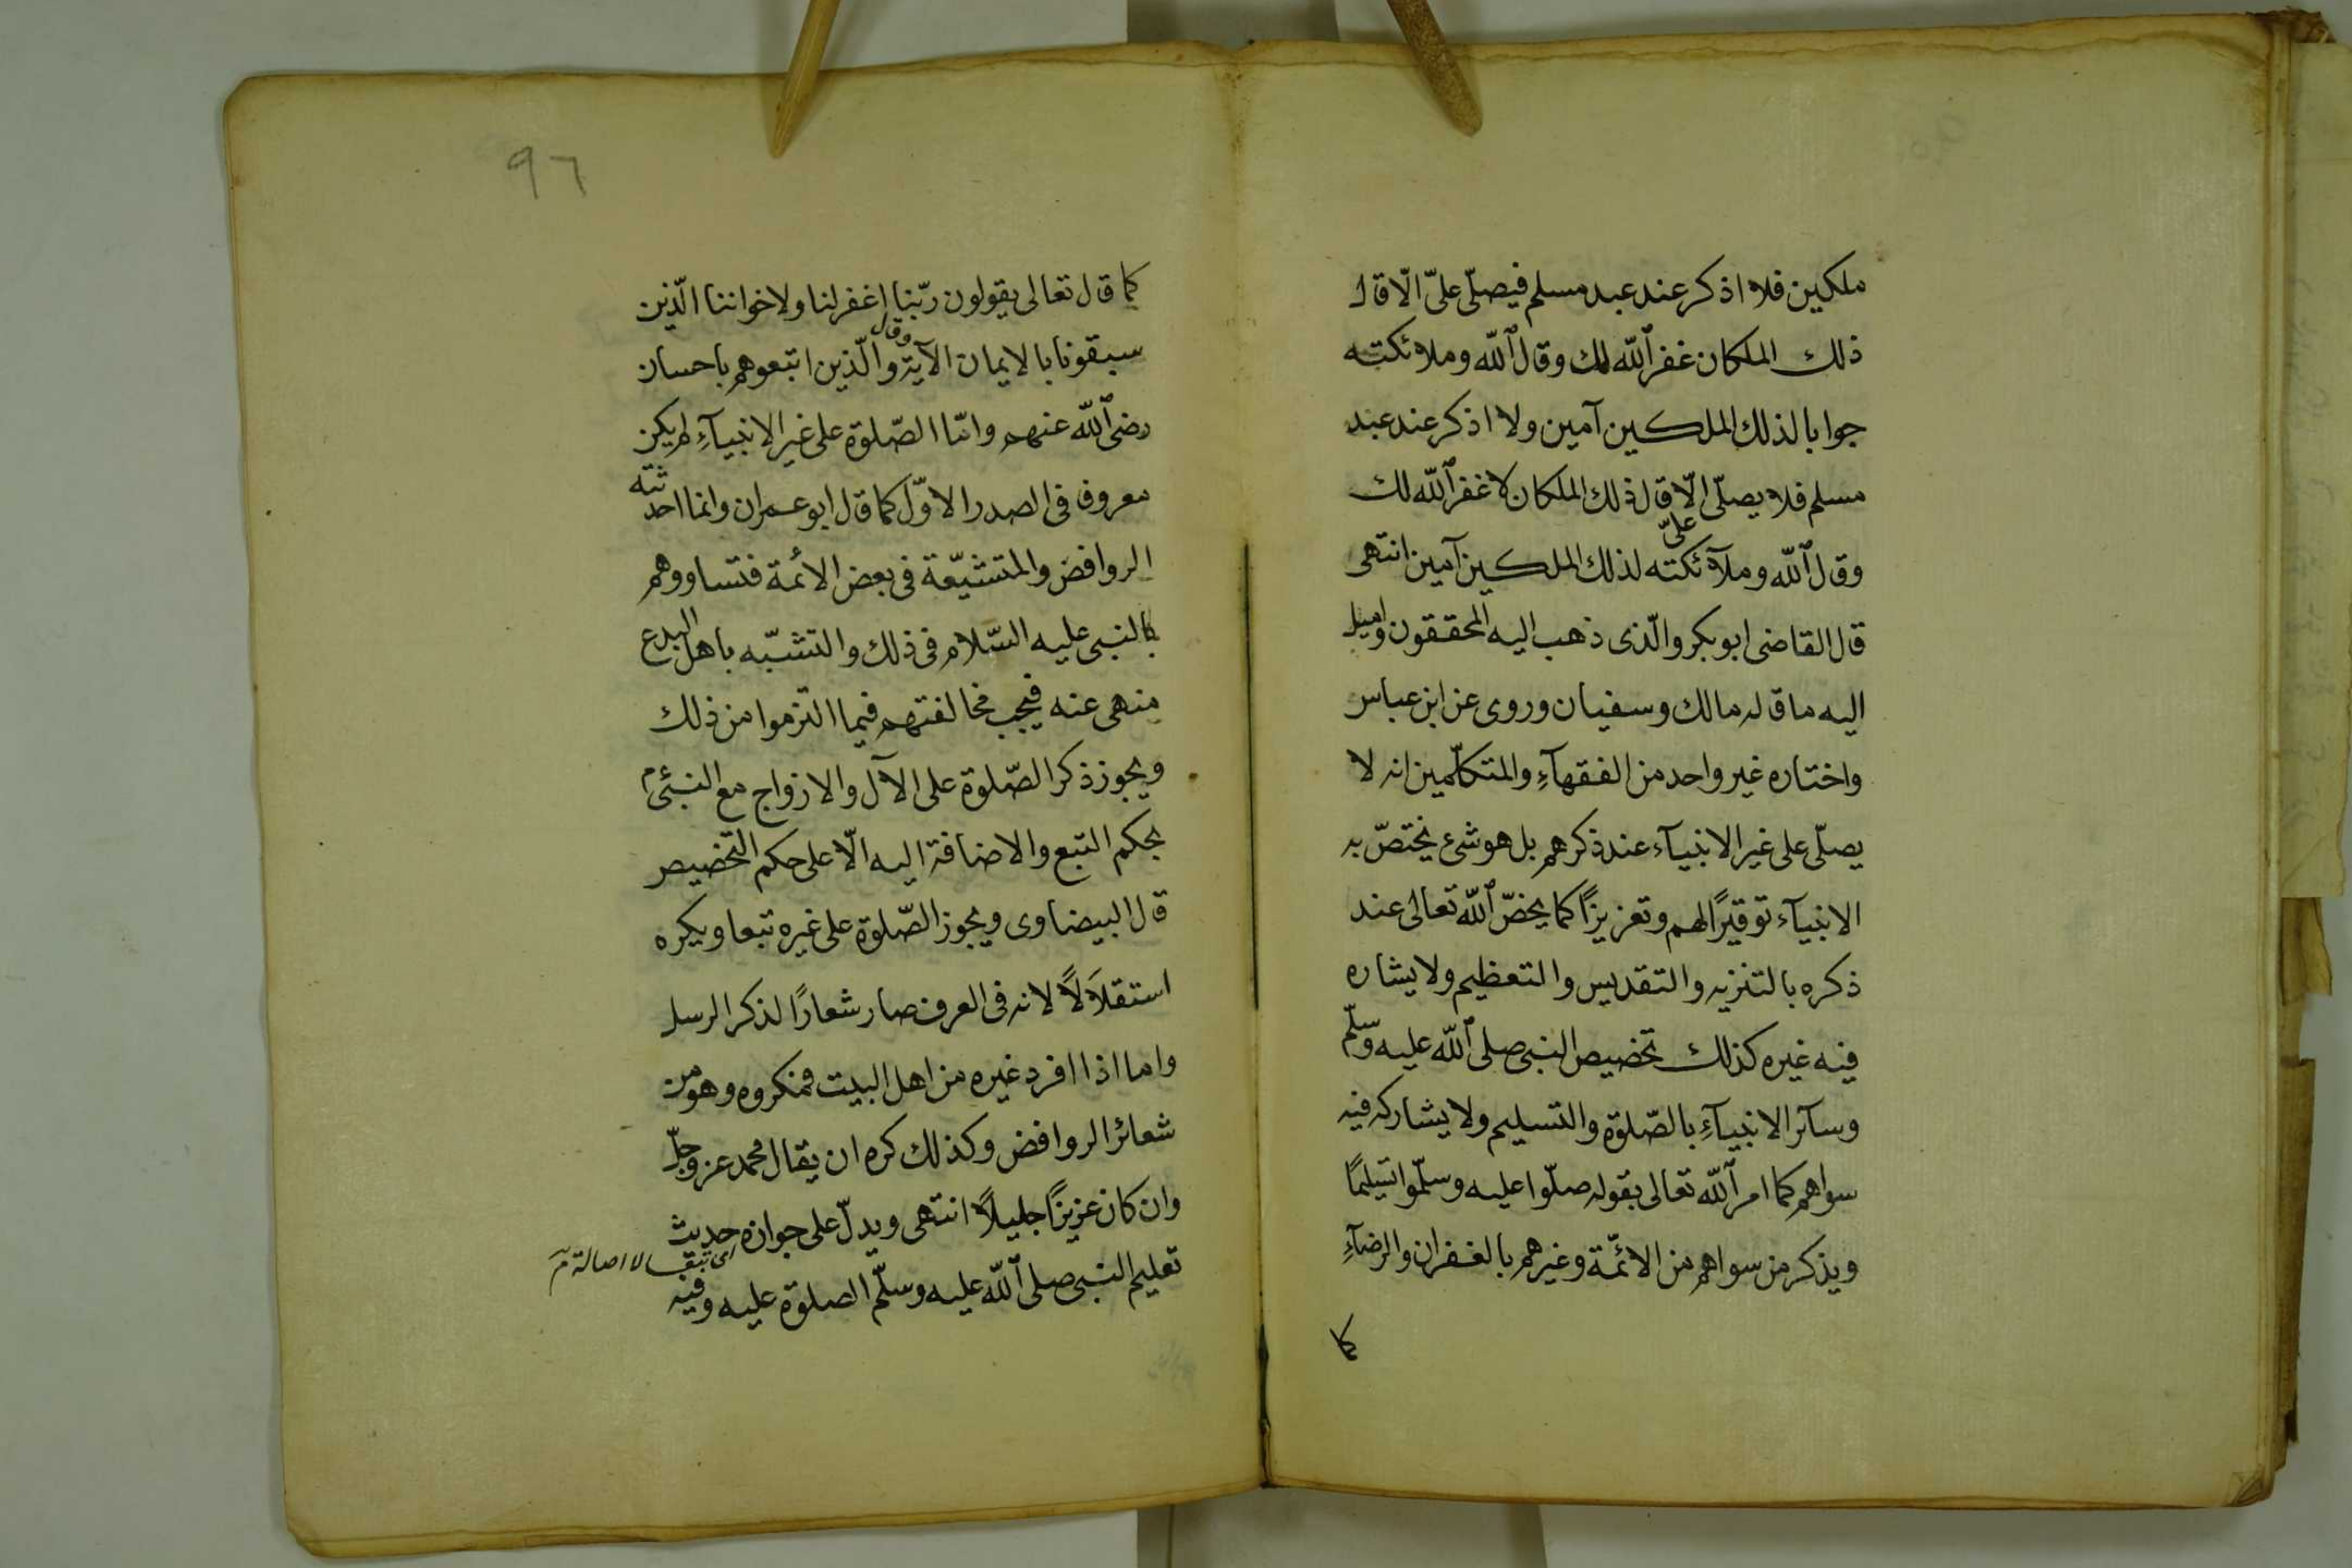 ملكين فلا اذكر عند عبد مسلم فيصلّى علىّ الّا قال
ذلك الملكان غفر الله لك وقال الله وملائكته
جوابا لذلك الملكين آمين ولا اذكر عند عبد
مسلم فلا يصلّى علىّ الّا قال ذلك الملكان لا غفر الله لك
وقال الله وملآئكته لذلك الملكين آمين انتهى
قال القاضى ابو بكر والّذى ذهب اليه المحققون واميل
اليه ما قاله مالك وسفيان وروى عن ابن عباس
واختاره غير واحد من الفقهآء والمتكلّمين انه لا
يصلّى على غير الانبيآء عند ذكرهم بل هو شئ يختصّ به
الانبيآء توقيرًا لهم وتعزيزًا كما يخصّ الله تعالى عند
ذكره بالتنزيه والتقديس والتعظيم ولا يشاره
فيه غيره كذلك تخصيص النبى صلى الله عليه وسلّم
وسآئر الانبيآء بالصّلوة والتسليم ولا يشاركه فيه
سواهم كما امر الله تعالى بقوله صلّوا عليه وسلّموا تسليمًا
ويذكر من سواهم من الائمّة وغيرهم بالغفران والرضآء
كما
٩٦
كما قال تعالى يقولون ربّنا اغفر لنا ولاخواننا الّذين
سبقونا بالايمان الآية وقال والّذين اتبعوهم باحسان
رضى الله عنهم وامّا الصّلوة على غير الانبيآء لم يكن
معروف فى الصدر الاوّل كما قال ابو عمران وانما احدثته
الروافض والمتشيّعة فى بعض الائمة فتساووهم
بالنبى عليه السّلام فى ذلك والتشبّه باهل البدع
منهى عنه فيجب مخالفتهم فيما التزموا من ذلك
ويجوز ذكر الصّلوة على الآل والازواج مع النبىّ م
بحكم التبع والاضافة اليه الّا على حكم التخصيص
قال البيضاوى ويجوز الصّلوة على غيره تبعا ويكره
استقلَالًا لانه فى العرف صار شعارًا لذكر الرسل
واما اذا افرد غيره من اهل البيت فمكروه وهو من
شعائر الروافض وكذلك كره ان يقال محمد عز وجلّ
وان كان عزيزًا جليلًا انتهى ويدلّ على جوازه حديث
اى تبعا لا اصالة م
تعليم النبى صلى الله عليه وسلّم الصلوة عليه وفيه